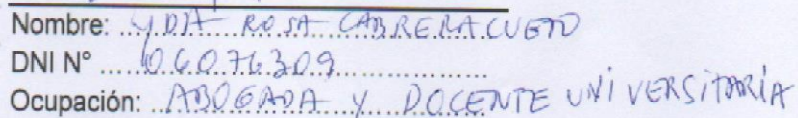 Nombre: YDA ROSA CABRERA CUETO
DNI N° 06076309
Ocupación: ABOGADA Y DOCENTE UNIVERSITARIA